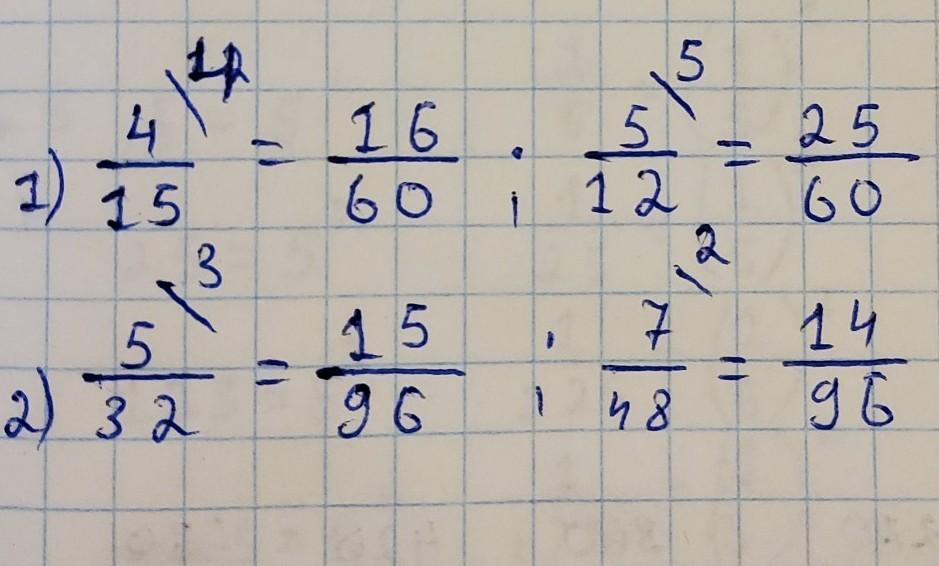 1) 4/15 = 16/60 ; 5/12 \5 = 25/60
2) 5/32 \3 = 15/96 ; 7/48 \2 = 14/96